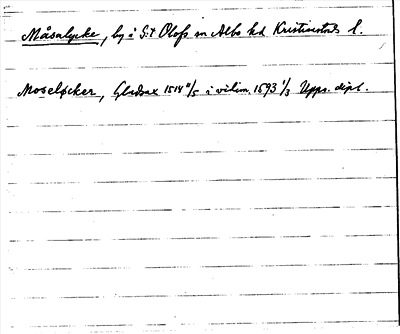 Måsalycke, by i S:t Olofs sn Albo hd Kristianstads l.
Moselycker, Gladsax 1514 11/5 i vidim. 1593 1/3 Upps. dipl.